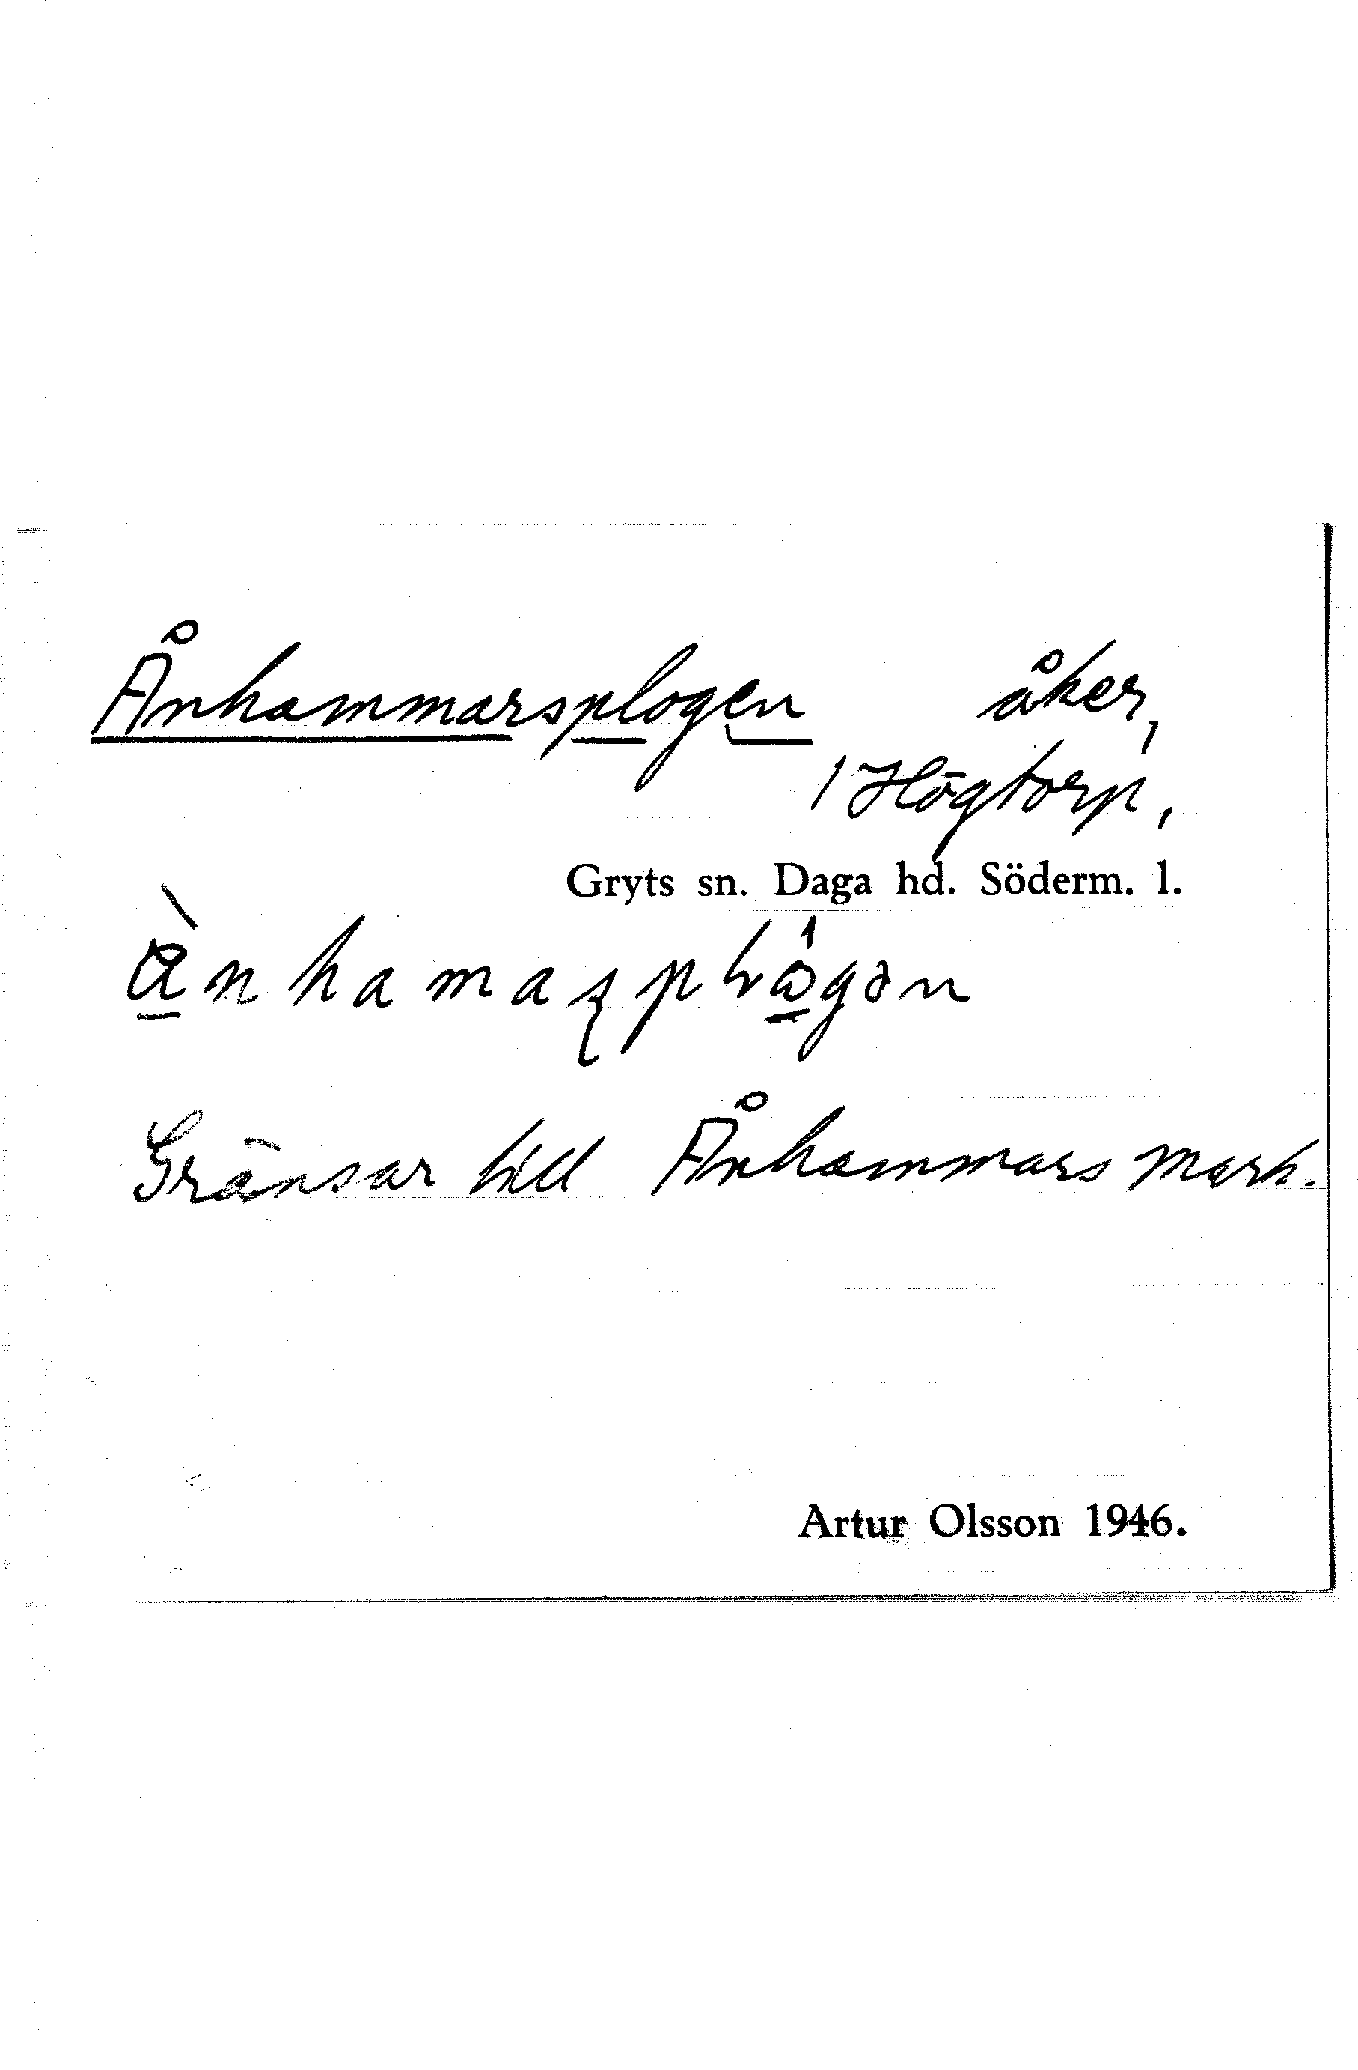 Ånhammarsplogen åker,
1 Högtorp,
Gryts sn. Daga hd. Söderm. l.
Gränsar till Ånhammars mark.
Artur Olsson 1946.